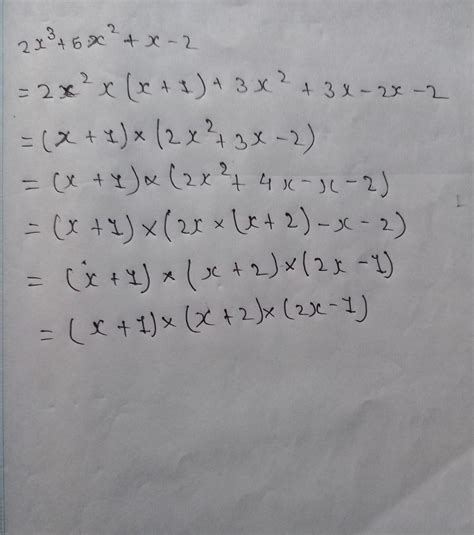 2x³+5x²+x-2
=2x²×(x+1)+3x²+3x-2x-2
=(x+1)×(2x²+3x-2)
=(x+1)×(2x²+4x-x-2)
=(x+1)×(2x×(x+2)-x-2)
=(x+1)×(x+2)×(2x-1)
=(x+1)×(x+2)×(2x-1)